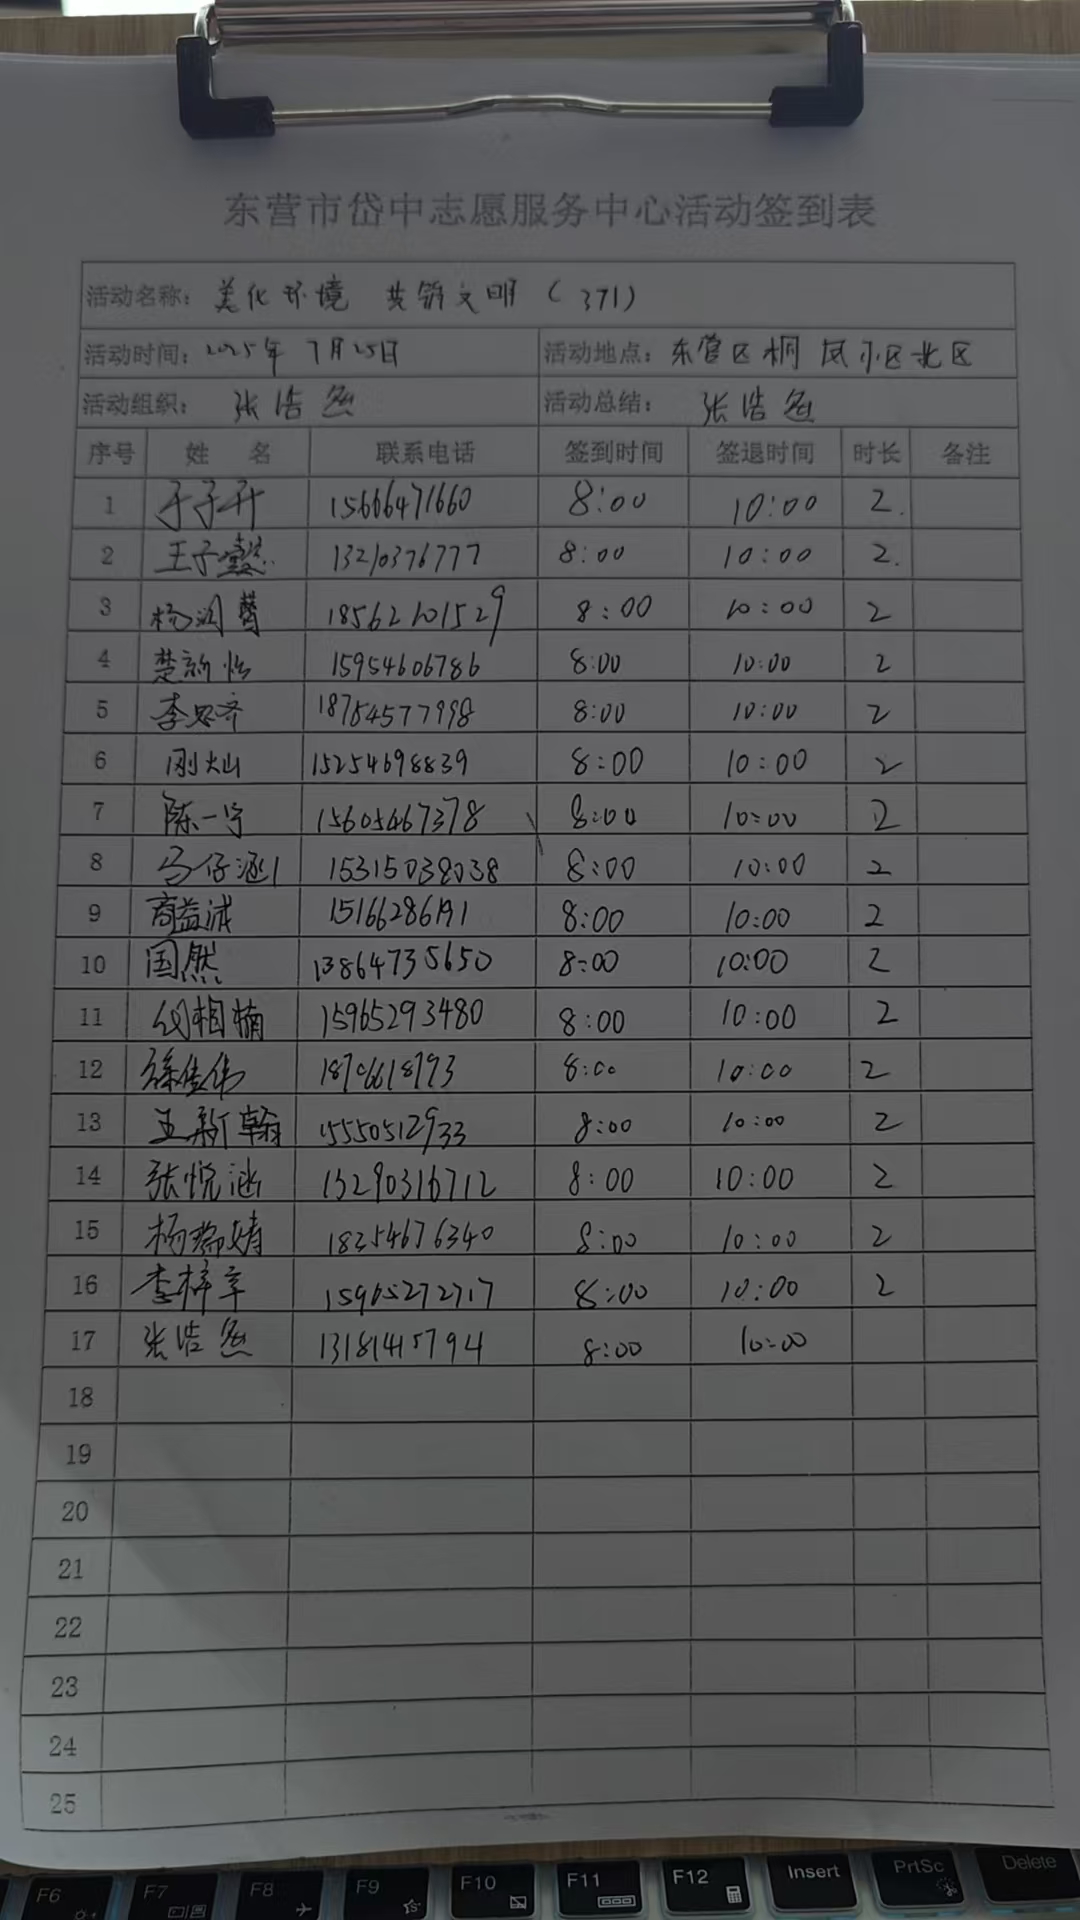 东营市岱中志愿服务中心活动签到表
活动名称: 美化环境 共筑文明 (371)
活动时间: 2025年7月25日 活动地点: 东营区桐凤小区北区
活动组织: 张浩 活动总结: 张浩
序号 姓名 联系电话 签到时间 签退时间 时长 备注
1 于子升 15666471660 8:00 10:00 2.
2 王子懿 13210376777 8:00 10:00 2.
3 杨润 18562101529 8:00 10:00 2
4 楚新怡 15954606786 8:00 10:00 2
5 李思齐 18784577998 8:00 10:00 2
6 刚灿 15254698839 8:00 10:00 2
7 陈一宁 15605467378 8:00 10:00 2
8 马仔涵 15315038038 8:00 10:00 2
9 商益诚 15166286191 8:00 10:00 2
10 国然 13864735650 8:00 10:00 2
11 相楠 15965293480 8:00 10:00 2
12 徐佳伟 8:00 10:00 2
13 王新翰 8:00 10:00 2
14 张悦涵 13290316712 8:00 10:00 2
15 杨瑞婧 18254676340 8:00 10:00 2
16 李梓辛 15965272717 8:00 10:00 2
17 张浩 13181415794 8:00 10:00
18
19
20
21
22
23
24
25
F6 F7 F8 F9 F10 F11 F12 Insert PrtSc Delete